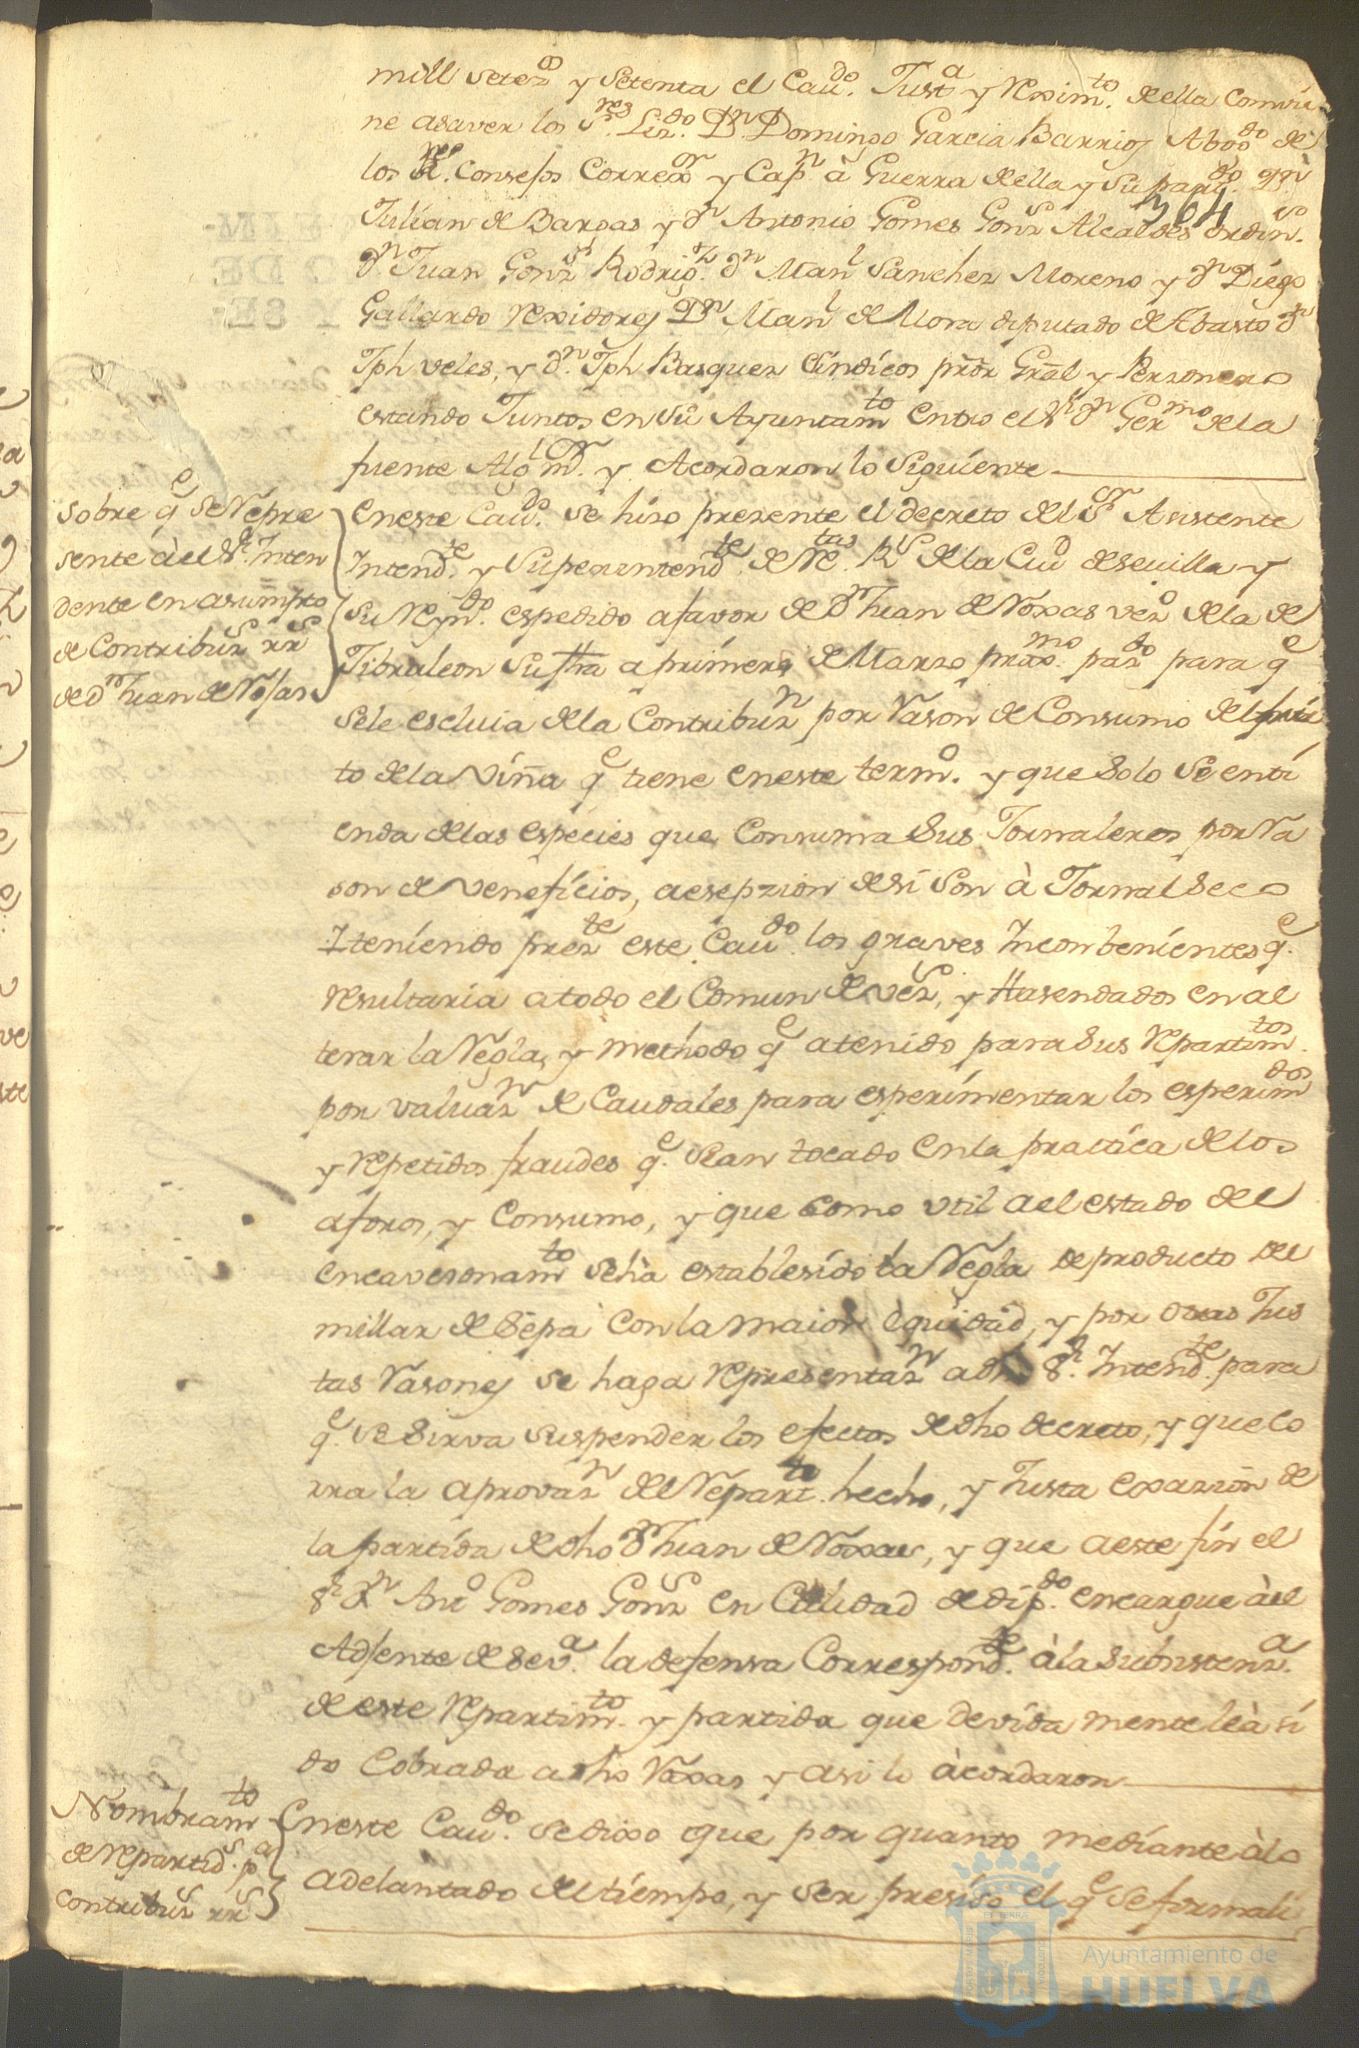 mill Setez.s y Setenta el Cau.do Just.a y Rexim.to de ella Combie
ne asaver los S.res Lizdo. Dn. Domingo Garcia Barrios Abogdo de
los Rs. Consejos Correxor y Capn à Guerra de ella y Su partdo. Dn
364
Julian de Bargas y dn Antonio Gomes Gonz Alcaldes Ordins.
dn. Juan Gonzs Rodrigz. dn Manl Sanches Moreno y dn Diego
Gallardo Rexidores Dn Manl de Mora diputado de Abasto dn
Jph Veles, y dn. Jph Basques Sindicos pror Gral y Personero
estando Juntos en Su Ayuntamto entro el Sr dn Germo de la
fuente Algl mor. y Acordaron lo Siguiente
Sobre qe Se Repre
sente à el Sr. Inten
dente en asumpto
de Contribuzs rrs
de dn Juan de Roxas
En este Caudo. Se hiso presente el decreto del Sr Asistente
Intendte. y Superintendte de Rtas. Rs de la Ciud de Sevilla y
Su Reyndo. espedido a favor de dn Juan de Roxas vezo de la de
Jibraleon Su fha a primero de Marzo proxmo. pazdo para qe
Sele escluia de la Contribuzn por Rason de Consumo del fru
to de la Viña qe tiene en este termo. y que Solo Se enti
enda de las especies que Consuma Sus Jornaleros por Ra
son de veneficios, a esepzion de Si Son à Jornal Seco
Y teniendo preste este Caudo. los graves Inconbenientes qe.
resultaria a todo el Comun de vezs, y Hasendados en al
terar la Regla, y methodo qe atenido para Sus Repartimtos.
por valuazn de Caudales para esperimentar los esperimdos
y repetidos fraudes qe. Sean tocado en la practica de los
aforos, y Consumo, y que Como util a el estado del
encavesonamto Sehà establesido la Regla de producto del
millar de Sepa Con la maior equidad, y por otras Jus
tas Rasones se haga representazn a dho Sr. Intendte. para
qe. Se Sirva suspender los efectos de dho decreto, y que Co
rra la aprovazn del Repartto. hecho, y Justa exazion de
la partida de dho dn Juan de Roxas, y que a este fin el
Sr Dn Anto Gomes Gonzs en Calidad de dipdo. encargue à el
Adjente de Seva. la defensa Correspondte. à la Subsistenza.
de este repartimto. y partida que devida mente le à si
do Cobrada a dho Roxas y asi lo àcordaron
Nombramto
de repartids. pa
Contribuzs rrs
En este Caudo. Se dixo que por quanto mediante à lo
adelantado del tiempo, y ser presiso el qe Se formali
Ayuntamiento de
HUELVA